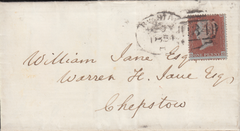 William Jane Esqr
Warren H. Jane Esqr
Chepstow